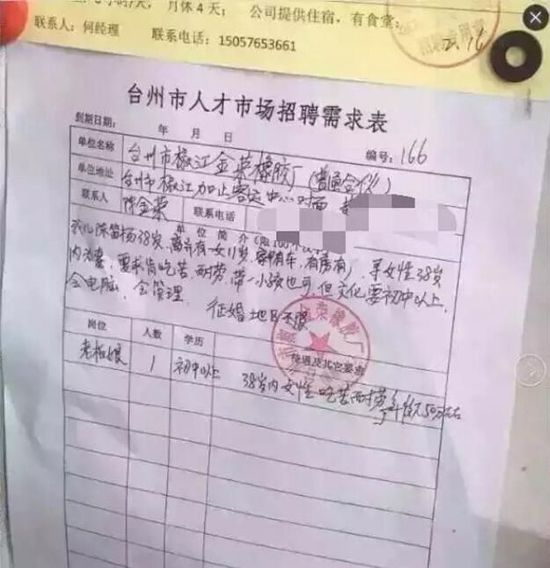 月休4天; 公司提供住宿, 有食堂:
联系人: 何经理 联系电话: 15057653661
2.16
台州市人才市场招聘需求表
到期日期: 年 月 日
编号: 166
单位名称 台州市椒江金荣橡胶厂(普通合伙)
单位地址 台州市椒江加止客运中心对面
联系人 陈金荣 联系电话
单位简介(限100个汉字)
陈笛杨38岁, 离异有一女11岁, 有车, 有房, 寻女性38岁
内为妻, 要求肯吃苦耐劳, 带一小孩也可, 但文化要初中以上,
会电脑, 会管理. 征婚地区不限
岗位 人数 学历 待遇及其它要求
老板娘 1 初中以上 38岁内女性吃苦耐劳年收入50万左右